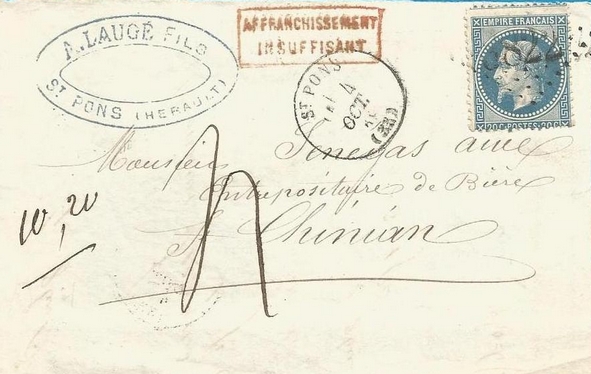 A. LAUGÉ FILS
ST PONS (HERAULT)
AFFRANCHISSEMENT
INSUFFISANT
ST PONS
4
OCT.
EMPIRE FRANÇAIS
20C POSTES 20C
Monsieur Senegas ainé
Entrepositaire de Bière
St Chinian
10,20